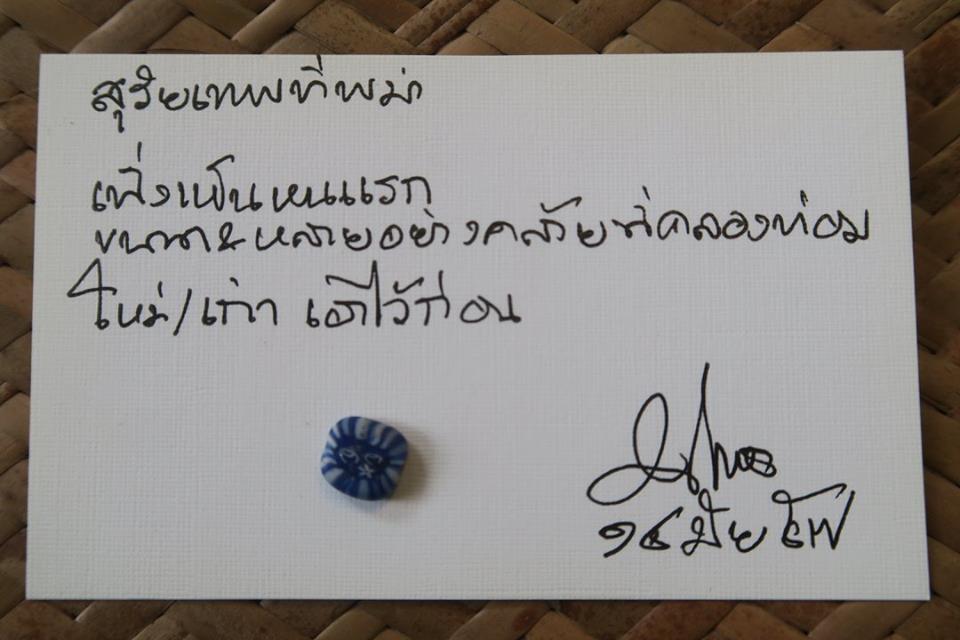 สุริยเทพที่พม่า
เพิ่งเห็นหนแรก
ขนาด & หลายอย่างคล้ายที่คลองท่อม
ใหม่/เก่า เอาไว้ก่อน
๑๔ มิย